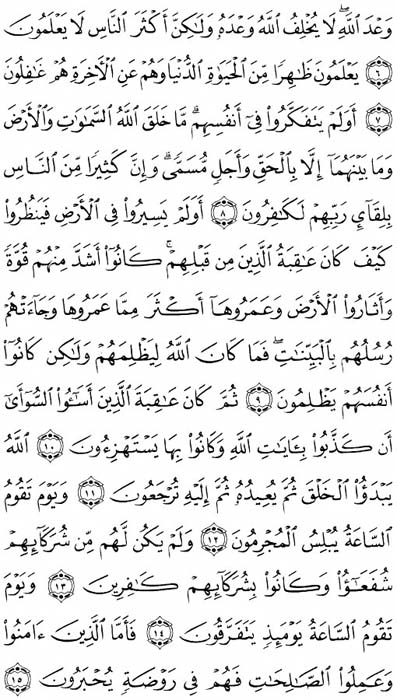 وَعْدَ ٱللَّهِۖ لَا يُخْلِفُ ٱللَّهُ وَعْدَهُۥ وَلَٰكِنَّ أَكْثَرَ ٱلنَّاسِ لَا يَعْلَمُونَ
٦ يَعْلَمُونَ ظَٰهِرًا مِّنَ ٱلْحَيَوٰةِ ٱلدُّنْيَا وَهُمْ عَنِ ٱلْءَاخِرَةِ هُمْ غَٰفِلُونَ
٧ أَوَلَمْ يَتَفَكَّرُوا۟ فِىٓ أَنفُسِهِمۗ مَّا خَلَقَ ٱللَّهُ ٱلسَّمَٰوَٰتِ وَٱلْأَرْضَ
وَمَا بَيْنَهُمَآ إِلَّا بِٱلْحَقِّ وَأَجَلٍ مُّسَمًّىۗ وَإِنَّ كَثِيرًا مِّنَ ٱلنَّاسِ
بِلِقَآئِ رَبِّهِمْ لَكَٰفِرُونَ ٨ أَوَلَمْ يَسِيرُوا۟ فِى ٱلْأَرْضِ فَيَنظُرُوا۟
كَيْفَ كَانَ عَٰقِبَةُ ٱلَّذِينَ مِن قَبْلِهِمْۚ كَانُوٓا۟ أَشَدَّ مِنْهُمْ قُوَّةً
وَأَثَارُوا۟ ٱلْأَرْضَ وَعَمَرُوهَآ أَكْثَرَ مِمَّا عَمَرُوهَا وَجَآءَتْهُمْ
رُسُلُهُم بِٱلْبَيِّنَٰتِۖ فَمَا كَانَ ٱللَّهُ لِيَظْلِمَهُمْ وَلَٰكِن كَانُوٓا۟
أَنفُسَهُمْ يَظْلِمُونَ ٩ ثُمَّ كَانَ عَٰقِبَةَ ٱلَّذِينَ أَسَٰٓـُٔوا۟ ٱلسُّوٓأَىٰٓ
أَن كَذَّبُوا۟ بِـَٔايَٰتِ ٱللَّهِ وَكَانُوا۟ بِهَا يَسْتَهْزِءُونَ ١٠ ٱللَّهُ
يَبْدَؤُا۟ ٱلْخَلْقَ ثُمَّ يُعِيدُهُۥ ثُمَّ إِلَيْهِ تُرْجَعُونَ ١١ وَيَوْمَ تَقُومُ
ٱلسَّاعَةُ يُبْلِسُ ٱلْمُجْرِمُونَ ١٢ وَلَمْ يَكُن لَّهُم مِّن شُرَكَآئِهِمْ
شُفَعَٰٓؤُا۟ وَكَانُوا۟ بِشُرَكَآئِهِمْ كَٰفِرِينَ ١٣ وَيَوْمَ
تَقُومُ ٱلسَّاعَةُ يَوْمَئِذٍ يَتَفَرَّقُونَ ١٤ فَأَمَّا ٱلَّذِينَ ءَامَنُوا۟
وَعَمِلُوا۟ ٱلصَّٰلِحَٰتِ فَهُمْ فِى رَوْضَةٍ يُحْبَرُونَ ١٥